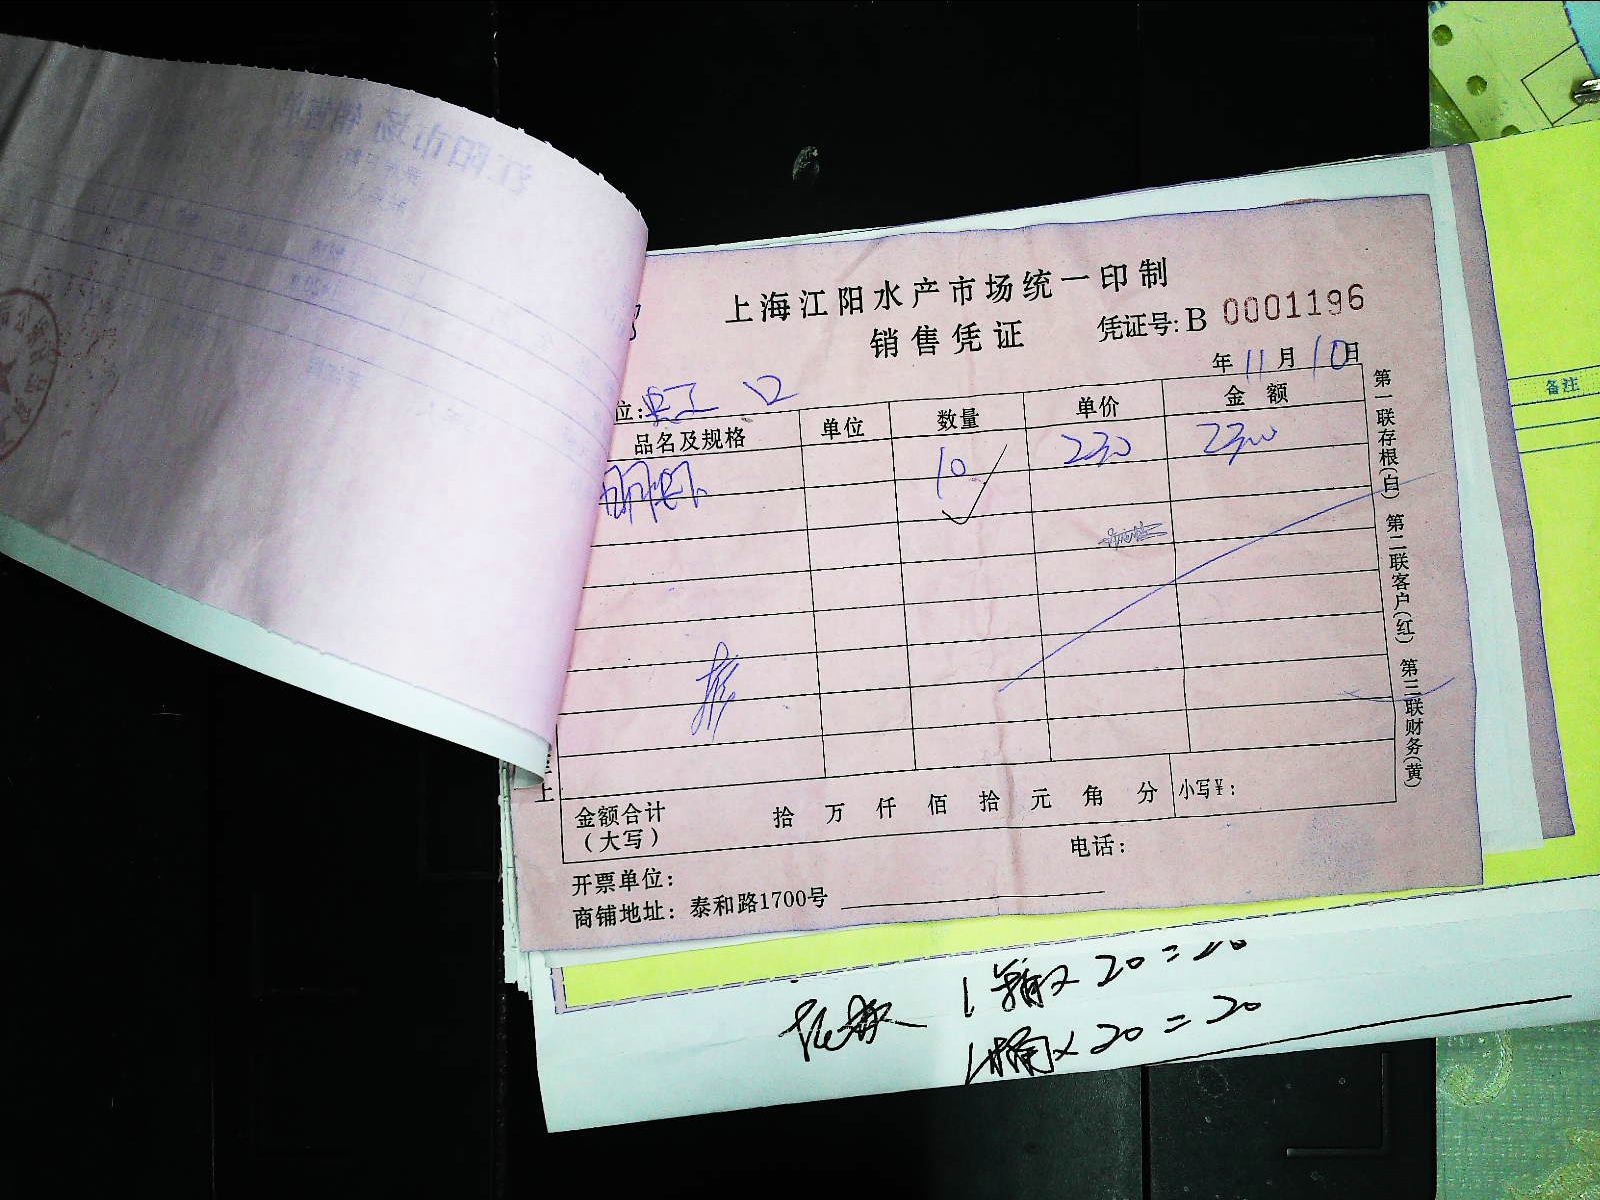 上海江阳水产市场统一印制
销售凭证 凭证号: B 0001196
年 11 月 10 日
位: 虹口
品名及规格 单位 数量 单价 金额
明虾 10 230 2300
金额合计 (大写) 拾 万 仟 佰 拾 元 角 分 小写¥:
电话:
开票单位:
商铺地址: 泰和路1700号
第一联存根(白) 第二联客户(红) 第三联财务(黄)
备注
1箱×20=20
1桶×20=20